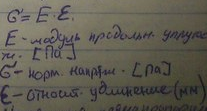 σ = E · ε.
E - модуль продольн. упруго
ти, [Па]
σ - норм. напряж. [Па]
ε - относит. удлинение (мм)